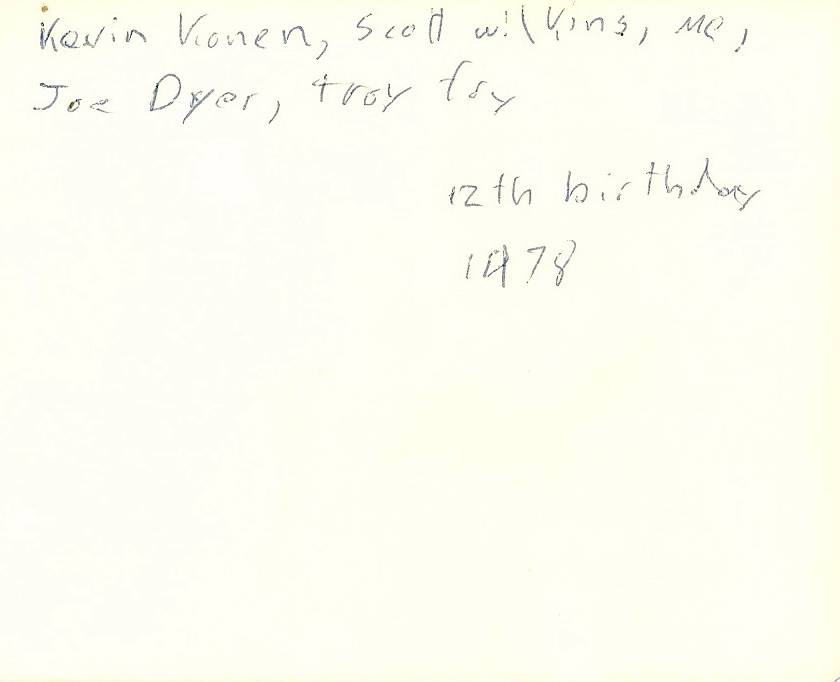 Kevin Konen, Scott wilkins, Me,
Joe Dyer, troy fry
12th birthday
1978